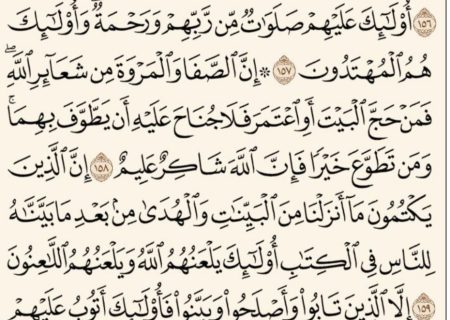 ١٥٦ أُوْلَٰٓئِكَ عَلَيْهِمْ صَلَوَٰتٌ مِّن رَّبِّهِمْ وَرَحْمَةٌ وَأُوْلَٰٓئِكَ
هُمُ ٱلْمُهْتَدُونَ ١٥٧ ۞ إِنَّ ٱلصَّفَا وَٱلْمَرْوَةَ مِن شَعَآئِرِ ٱللَّهِۖ
فَمَنْ حَجَّ ٱلْبَيْتَ أَوِ ٱعْتَمَرَ فَلَا جُنَاحَ عَلَيْهِ أَن يَطَّوَّفَ بِهِمَاۚ
وَمَن تَطَوَّعَ خَيْرًا فَإِنَّ ٱللَّهَ شَاكِرٌ عَلِيمٌ ١٥٨ إِنَّ ٱلَّذِينَ
يَكْتُمُونَ مَآ أَنزَلْنَا مِنَ ٱلْبَيِّنَٰتِ وَٱلْهُدَىٰ مِنۢ بَعْدِ مَا بَيَّنَّٰهُ
لِلنَّاسِ فِي ٱلْكِتَٰبِ أُوْلَٰٓئِكَ يَلْعَنُهُمُ ٱللَّهُ وَيَلْعَنُهُمُ ٱللَّٰعِنُونَ
١٥٩ إِلَّا ٱلَّذِينَ تَابُواْ وَأَصْلَحُواْ وَبَيَّنُواْ فَأُوْلَٰٓئِكَ أَتُوبُ عَلَيْهِمْ